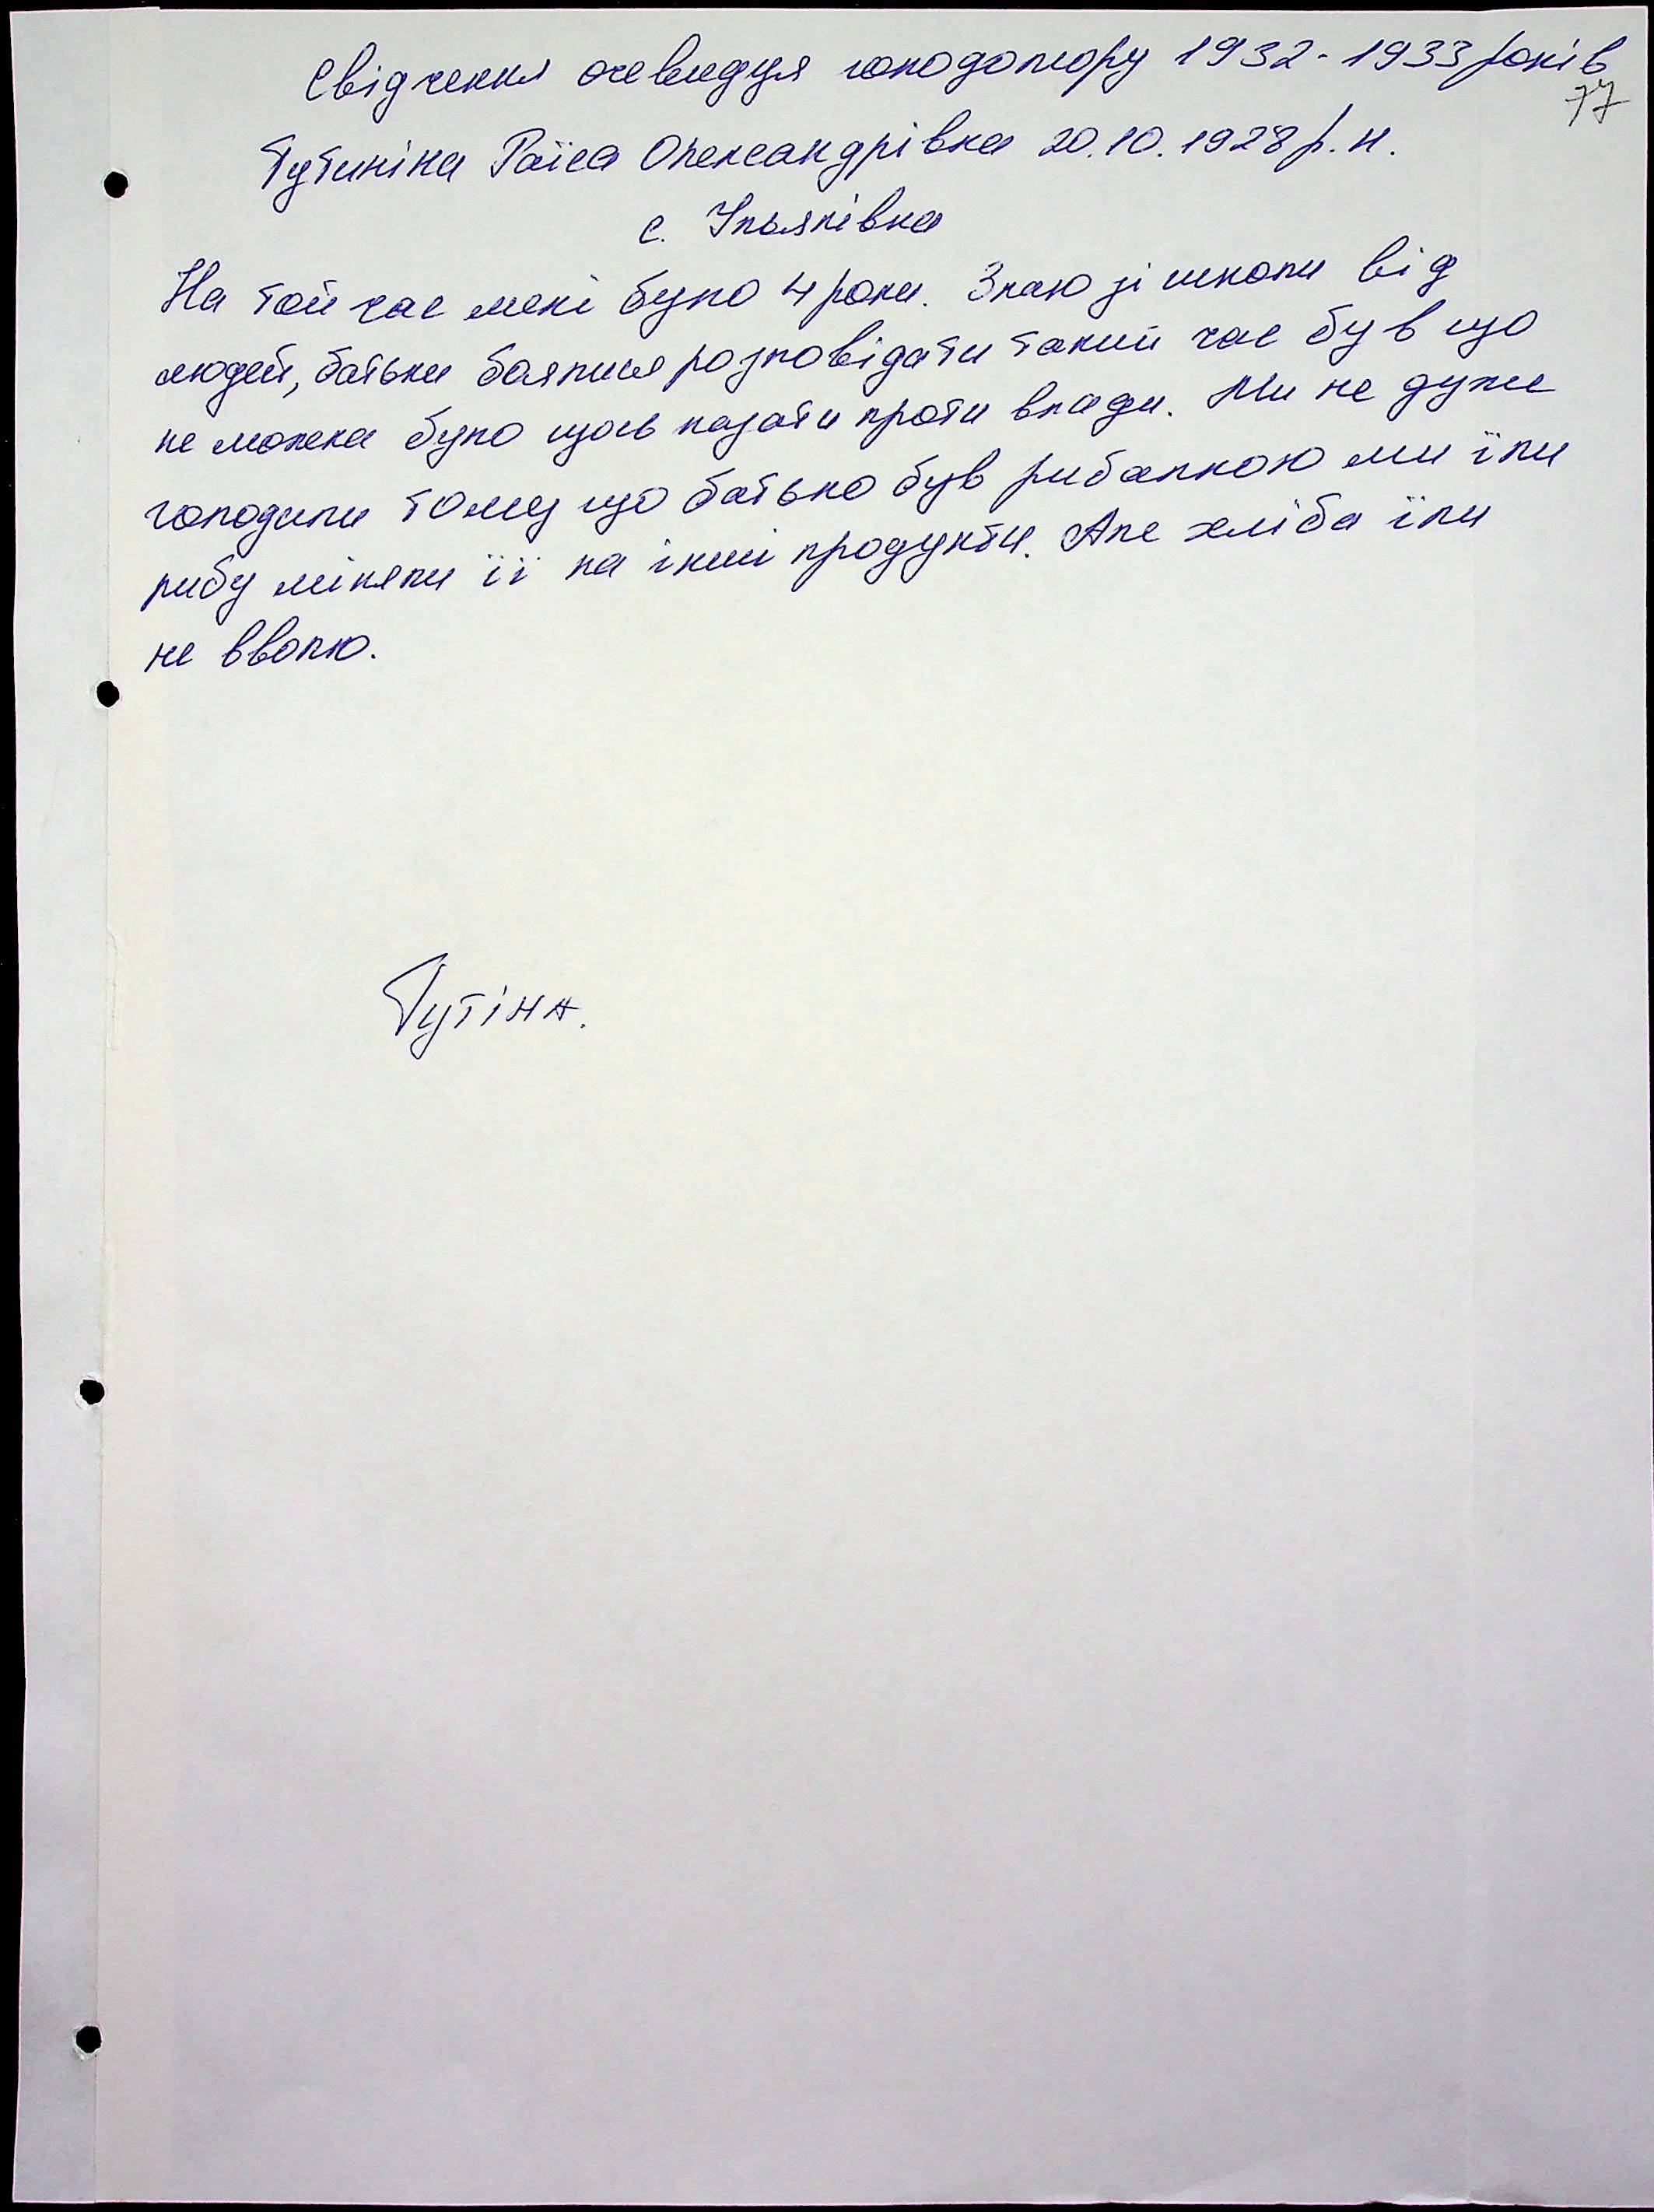 Свідчення очевидця голодомору 1932-1933 років
77
Тутиніна Раїса Олександрівна 20.10.1928 р.н.
с. Ульянівка
На той час мені було 4 роки. Знаю зі школи від
людей, батьки боялися розповідати такий час був що
не можна було щось казати проти влади. Ми не дуже
голодили тому що батько був рибалкою ми їли
рибу міняли її на інші продукти. Але хліба їли
не вволю.
Тутіна.